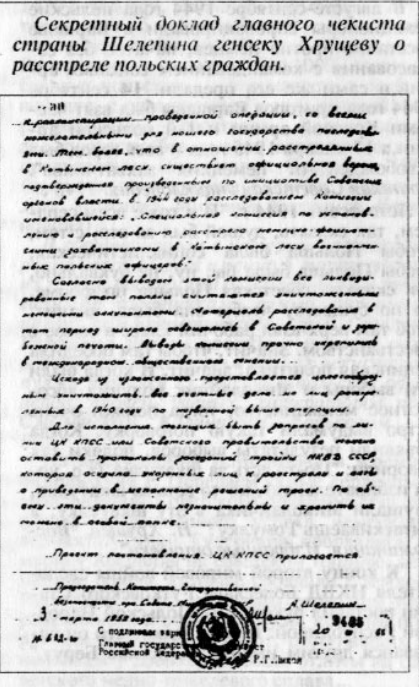 Секретный доклад главного чекиста
страны Шелепина генсеку Хрущеву о
расстреле польских граждан.
к расконспирации проведенной операции, со всеми
нежелательными для нашего государства последстви-
ями. Тем более, что в отношении расстрелянных
в Катынском лесу существует официальная версия,
подтвержденная произведенным по инициативе Советских
органов власти в 1944 году расследованием Комиссии
именовавшейся: "Специальная комиссия по установ-
лению и расследованию расстрела немецко-фашист-
скими захватчиками в Катынском лесу военноплен-
ных польских офицеров".
Согласно выводам этой комиссии все ликвиди-
рованные там поляки считаются уничтоженными
немецкими оккупантами. Материалы расследования в
тот период широко освещались в Советской и зару-
бежной печати. Выводы комиссии прочно укрепились
в международном общественном мнении.
Исходя из изложенного представляется целесооб-
разным уничтожить все учетные дела на лиц, расстре-
лянных в 1940 году по названной выше операции.
Для исполнения могущих быть запросов по ли-
нии ЦК КПСС или Советского правительства можно
оставить протоколы заседаний тройки НКВД СССР,
которая осудила указанных лиц к расстрелу и акты
о приведении в исполнение решений троек. По объ-
ему эти документы незначительны и хранить их
можно в особой папке.
Проект постановления ЦК КПСС прилагается.
Председатель Комитета государственной
безопасности при Совете Министров
А. Шелепин
3 марта 1959 года
С подлинным верно
Главный государственный
Российской Федерации
Р.Г. Пихоя
9485
20